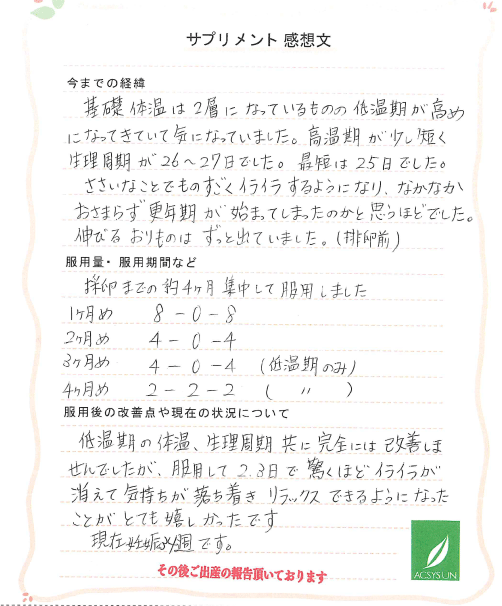 サプリメント 感想文
今までの経緯
基礎体温は2層になっているものの低温期が高め
になってきていて気になっていました。高温期が少し短く
生理周期が26〜27日でした。最短は25日でした。
ささいなことでものすごくイライラするようになり、なかなか
おさまらず更年期が始まってしまったのかと思うほどでした。
伸びるおりものはずっと出ていました。(排卵前)
服用量・服用期間など
採卵までの約4ヶ月集中して服用しました
1ヶ月め 8-0-8
2ヶ月め 4-0-4
3ヶ月め 4-0-4 (低温期のみ)
4ヶ月め 2-2-2 ( 〃 )
服用後の改善点や現在の状況について
低温期の体温、生理周期共に完全には改善しま
せんでしたが、服用して2.3日で驚くほどイライラが
消えて気持ちが落ち着きリラックスできるようになった
ことがとても嬉しかったです
現在妊娠週です。
その後ご出産の報告頂いております
ACSYSUN